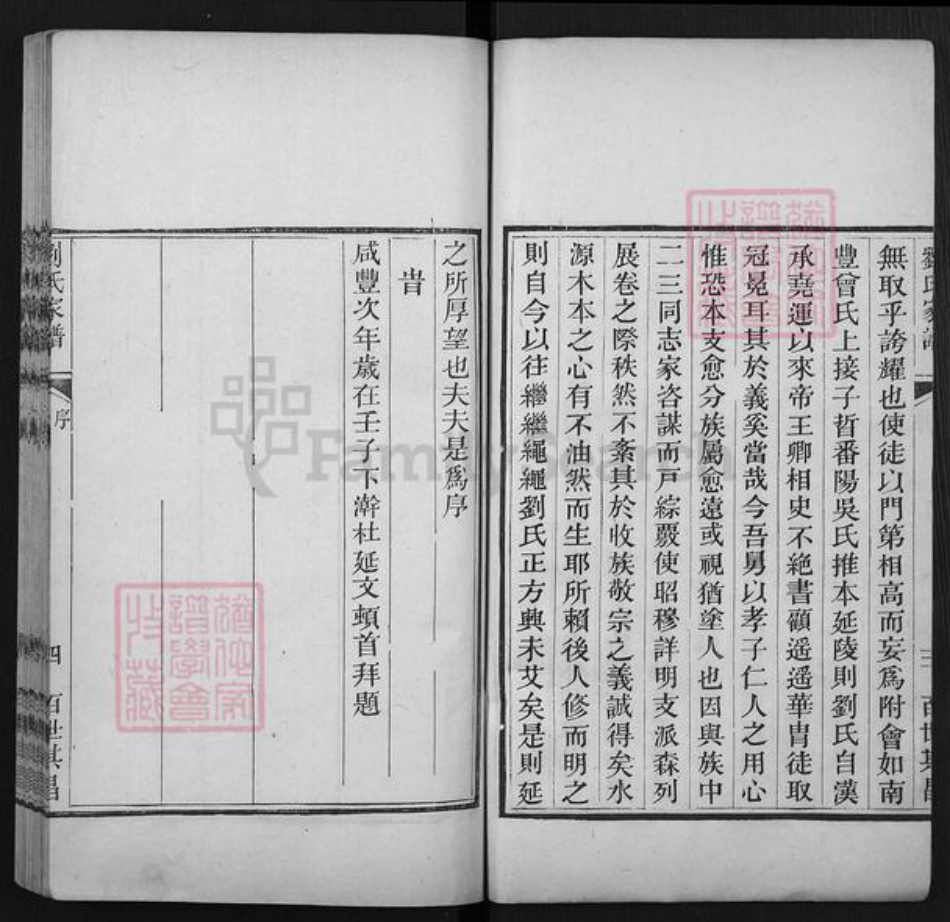 劉氏家譜
三
百世其昌
無取乎誇耀也使徒以門第相高而妄爲附會如南
豐曾氏上接子晳番陽吳氏推本延陵則劉氏自漢
承堯運以來帝王卿相史不絶書顧遥遥華胄徒取
冠冕耳其於義奚當哉今吾舅以孝子仁人之用心
惟恐本支愈分族屬愈遠或視猶塗人也因與族中
二三同志家咨謀而戸綜覈使昭穆詳明支派森列
展卷之際秩然不紊其於收族敬宗之義誠得矣水
源木本之心有不油然而生耶所賴後人修而明之
則自今以往繼繼繩繩劉氏正方興未艾矣是則延
之所厚望也夫夫是爲序
旹
咸豐次年歲在壬子下澣杜延文頓首拜題
劉氏家譜
序
四
百世其昌
FamilySearch
譜學會
收藏